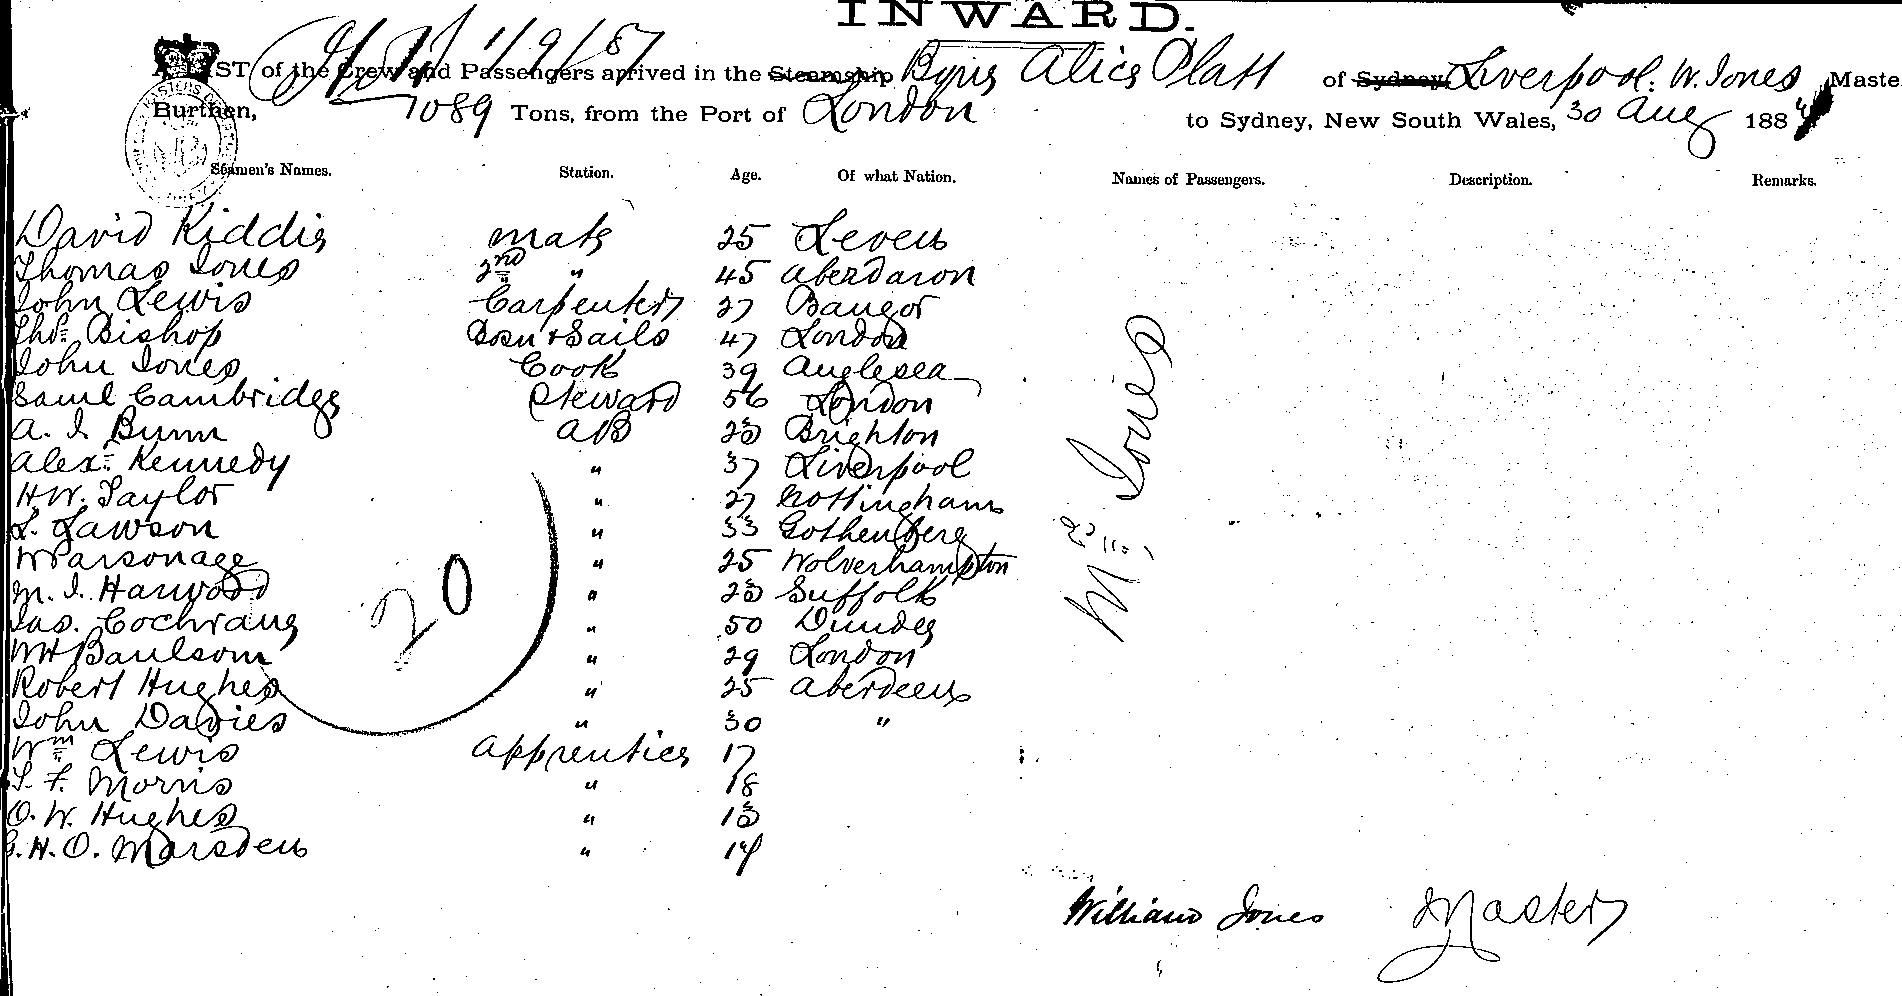 INWARD.
1/9/87
A LIST of the Crew and Passengers arrived in the Steamship Barque Alice Platt of Sydney, Liverpool. W. Jones, Maste
Burthen, 1089 Tons, from the Port of London to Sydney, New South Wales, 30 Aug 188
Seamen's Names. Station. Age. Of what Nation. Names of Passengers. Description. Remarks.
David Kiddie mate 25 Leven
Thomas Jones 2nd " 45 Aberdaron
John Lewis Carpenter 27 Bangor
Thos. Bishop Bosn & Sails 47 London
John Jones Cook 39 Anglesea
Saml Cambridge Steward 56 London
A. J. Bunn AB 23 Brighton
Alexr. Kennedy " 37 Liverpool
H W. Taylor " 27 Nottingham
L. Lawson " 33 Gothenberg
W Parsonage " 25 Wolverhampton
M. J. Harwood " 23 Suffolk
Jas. Cochrane " 50 Dundee
WH Baulsom " 29 London
Robert Hughes " 25 Aberdeen
John Davies " 30 "
Wm Lewis Apprentice 17
T. F. Morris " 18
O. W. Hughes " 13
G. H. O. Marsden " 14
20
Mrs. Jones
William Jones Master